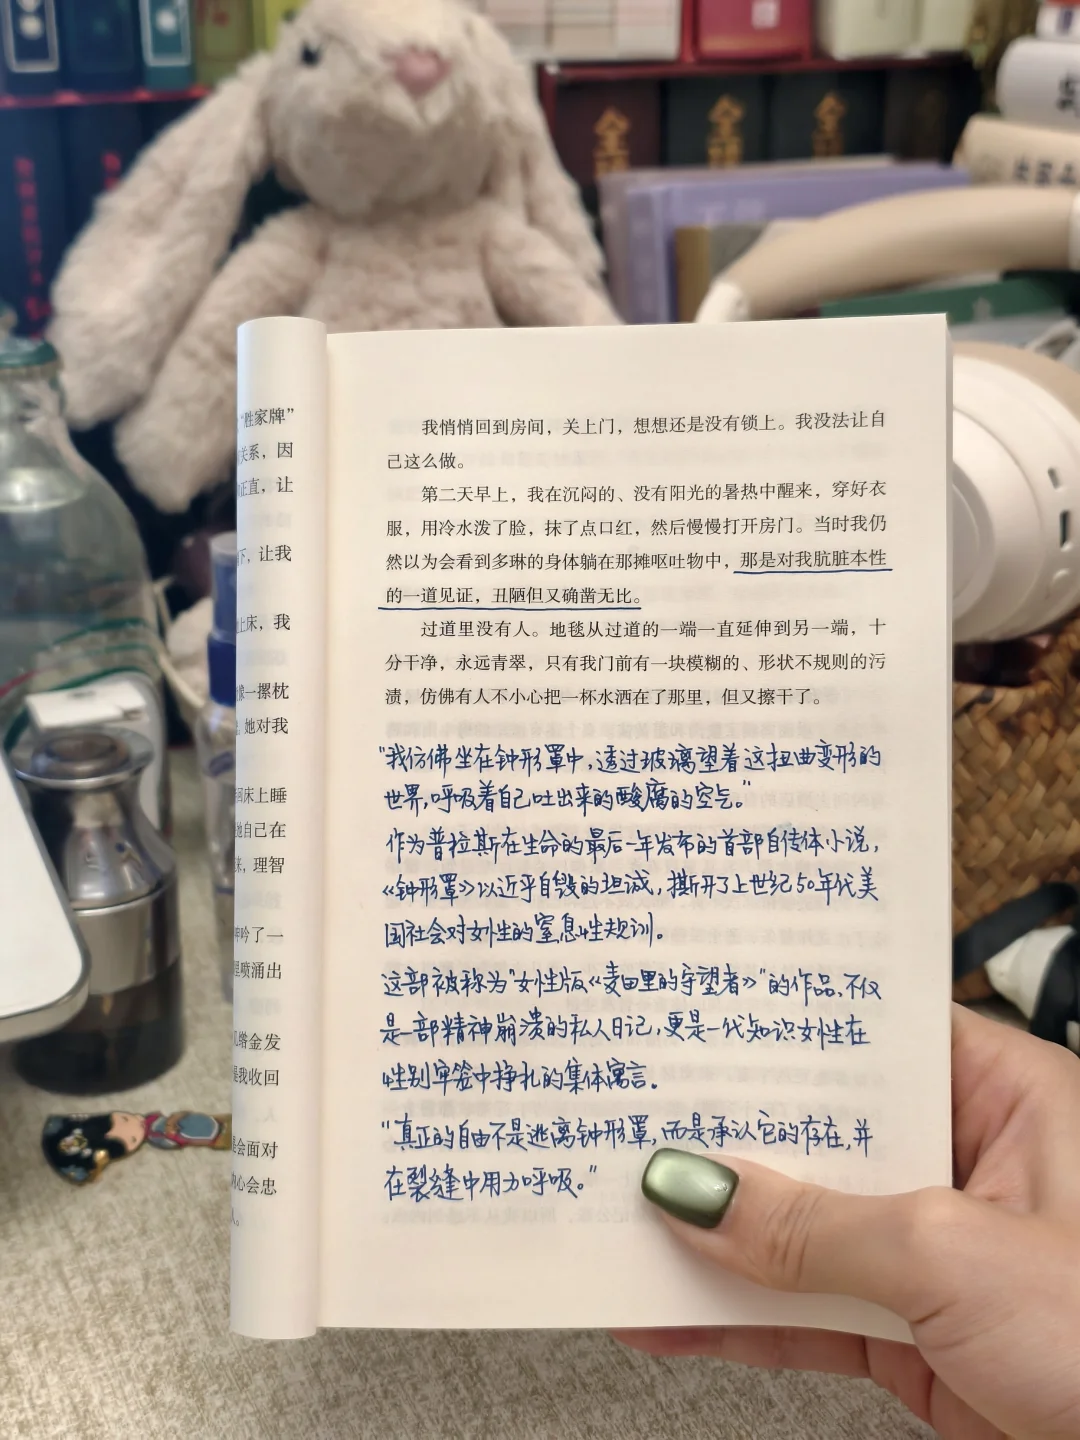 “胜家牌”
关系，因
正直，让
下，让我
上床，我
像一摞枕
她对我
床上睡
她自己在
理智
呻吟了一
里喷涌出
绺金发
我收回
会面对
内心会忠
我悄悄回到房间，关上门，想想还是没有锁上。我没法让自
己这么做。
第二天早上，我在沉闷的、没有阳光的暑热中醒来，穿好衣
服，用冷水泼了脸，抹了点口红，然后慢慢打开房门。当时我仍
然以为会看到多琳的身体躺在那摊呕吐物中，那是对我肮脏本性
的一道见证，丑陋但又确凿无比。
过道里没有人。地毯从过道的一端一直延伸到另一端，十
分干净，永远青翠，只有我门前有一块模糊的、形状不规则的污
渍，仿佛有人不小心把一杯水洒在了那里，但又擦干了。
“我仿佛坐在钟形罩中，透过玻璃望着这扭曲变形的
世界，呼吸着自己吐出来的酸腐的空气。”
作为普拉斯在生命的最后一年发布的首部自传体小说，
《钟形罩》以近乎自毁的坦诚，撕开了上世纪50年代美
国社会对女性的窒息性规训。
这部被称为“女性版《麦田里的守望者》”的作品，不仅
是一部精神崩溃的私人日记，更是一代知识女性在
性别牢笼中挣扎的集体寓言。
“真正的自由不是逃离钟形罩，而是承认它的存在，并
在裂缝中用力呼吸。”